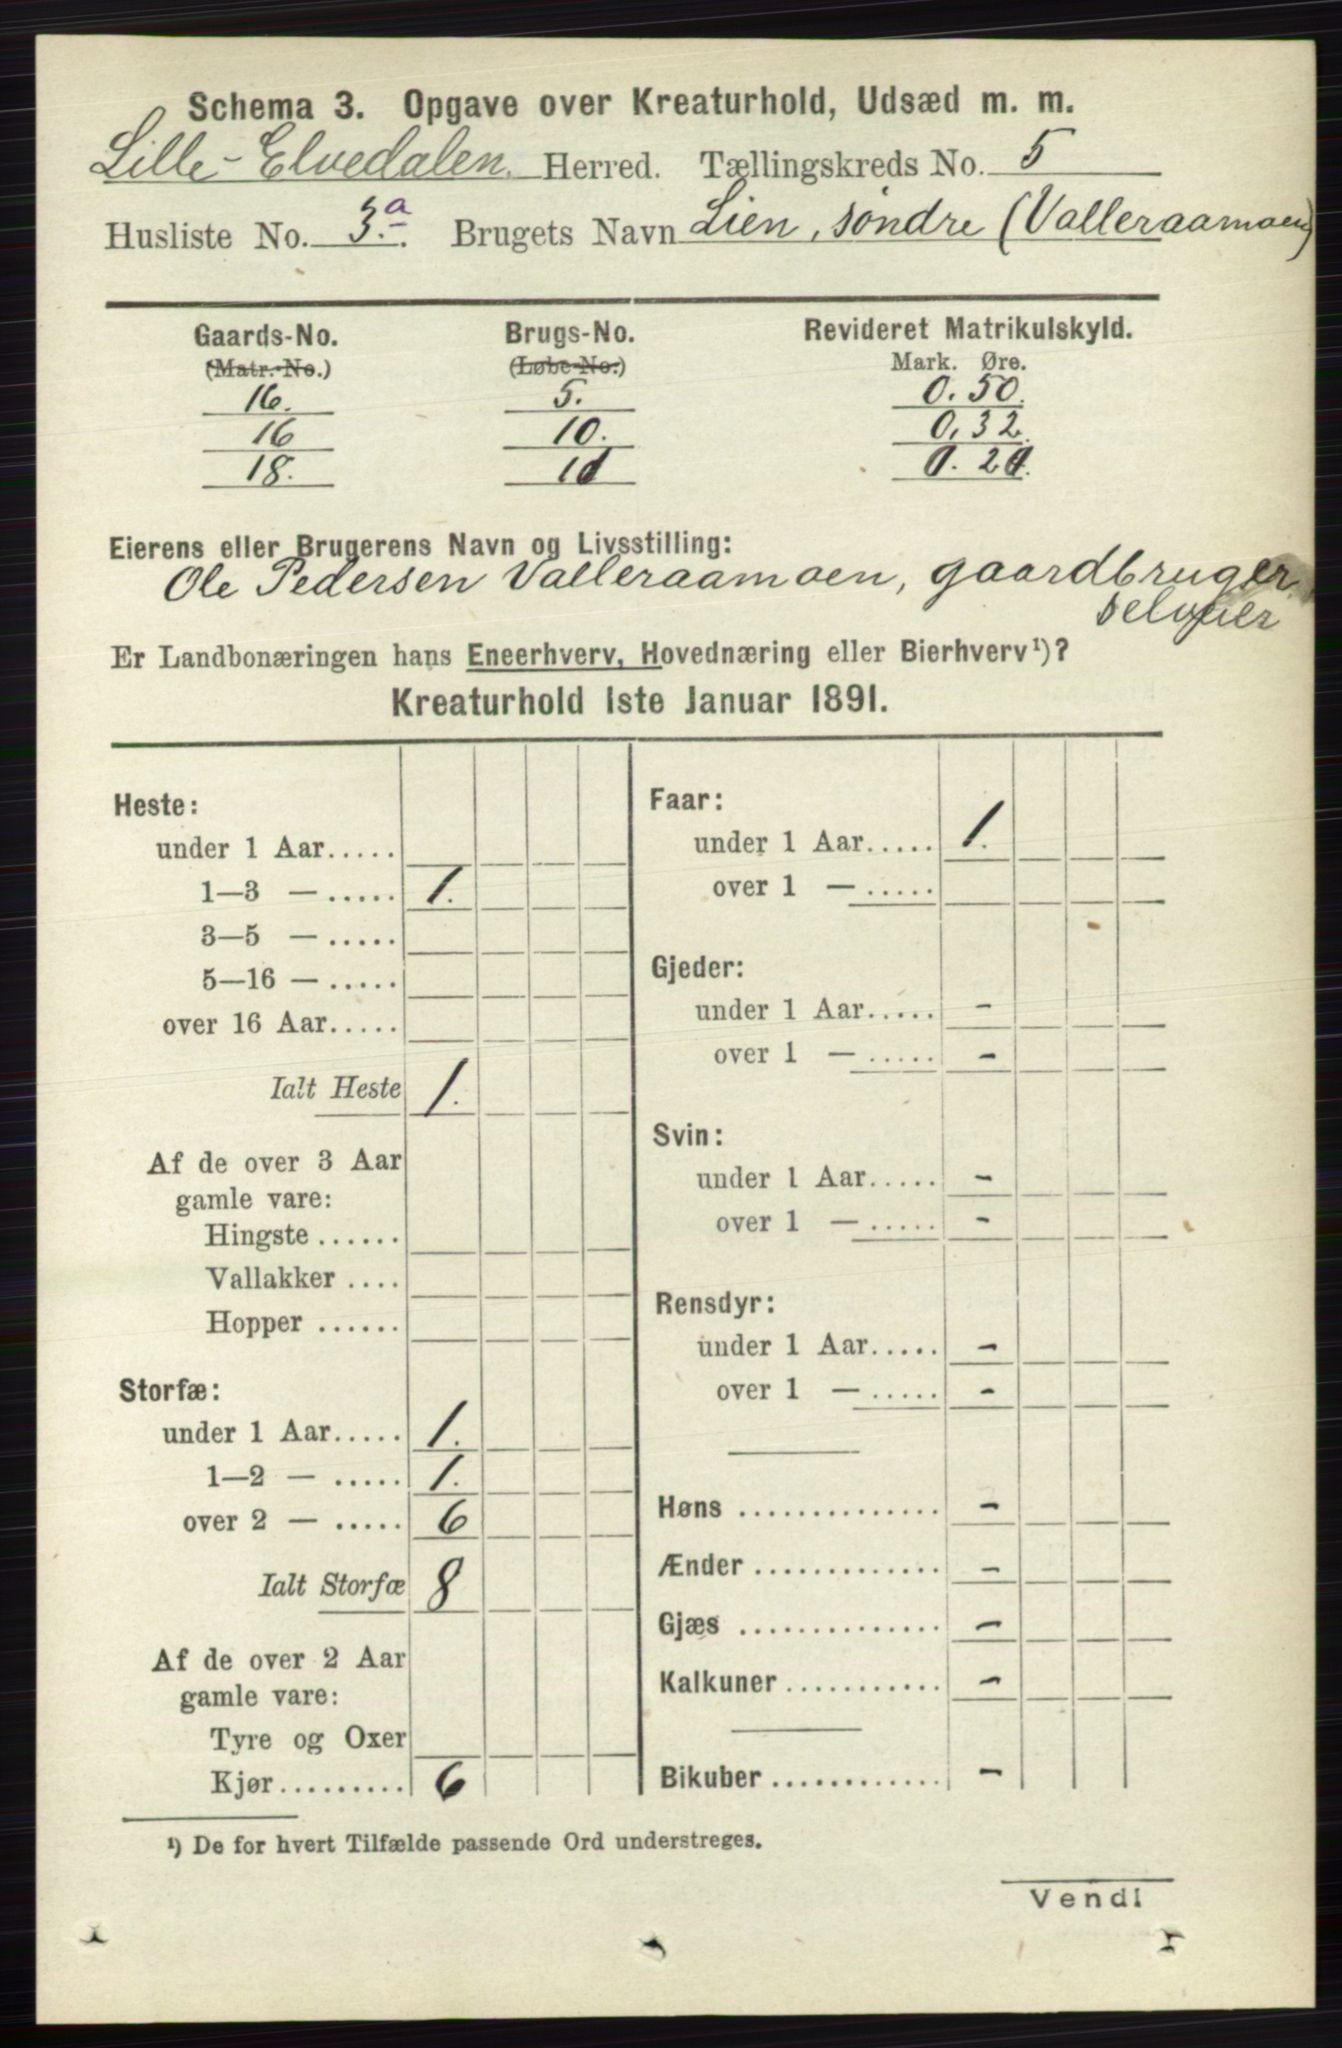 Schema 3. Opgave over Kreaturhold, Udsæd m. m.
Lille-Elvedalen Herred. Tællingskreds No. 5
Husliste No. 3.a Brugets Navn Lien, søndre (Valleraamoen)
Gaards-No. Brugs-No. Revideret Matrikulskyld.
(Matr.-No.) (Løbe-No.) Mark. Øre.
16. 5. 0.50.
16 10. 0,32.
18. 0.20.
Eierens eller Brugerens Navn og Livsstilling:
Ole Pedersen Valleraamoen, gaardbruger,
selveier
Er Landbonæringen hans Eneerhverv, Hovednæring eller Bierhverv¹)?
Kreaturhold 1ste Januar 1891.
Heste:
under 1 Aar.....
1—3 — ..... 1.
3—5 — .....
5—16 — .....
over 16 Aar.....
Ialt Heste 1.
Af de over 3 Aar
gamle vare:
Hingste ......
Vallakker ....
Hopper ......
Storfæ:
under 1 Aar..... 1.
1—2 — ..... 1.
over 2 — ..... 6
Ialt Storfæ 8
Af de over 2 Aar
gamle vare:
Tyre og Oxer
Kjør......... 6
Faar:
under 1 Aar..... 1.
over 1 — .....
Gjeder:
under 1 Aar..... -
over 1 — ..... -
Svin:
under 1 Aar..... -
over 1 — ..... -
Rensdyr:
under 1 Aar..... -
over 1 — ..... -
Høns .............. -
Ænder ............. -
Gjæs .............. -
Kalkuner ........... -
Bikuber ............ -
¹) De for hvert Tilfælde passende Ord understreges.
Vend!